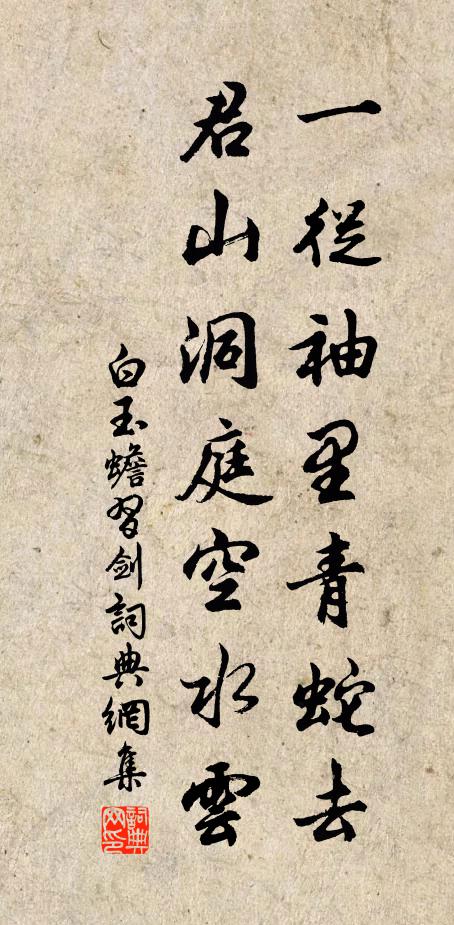 一從袖里青蛇去
君山洞庭空水雲
白玉蟾習劍詞典網集
詞典網印